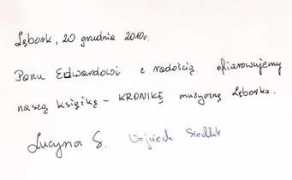 Lębork, 20 grudnia 2010r.
Panu Edwardowi z radością ofiarowujemy
naszą książkę - KRONIKĘ muzyczną Lęborka.
Lucyna S. Wojciech